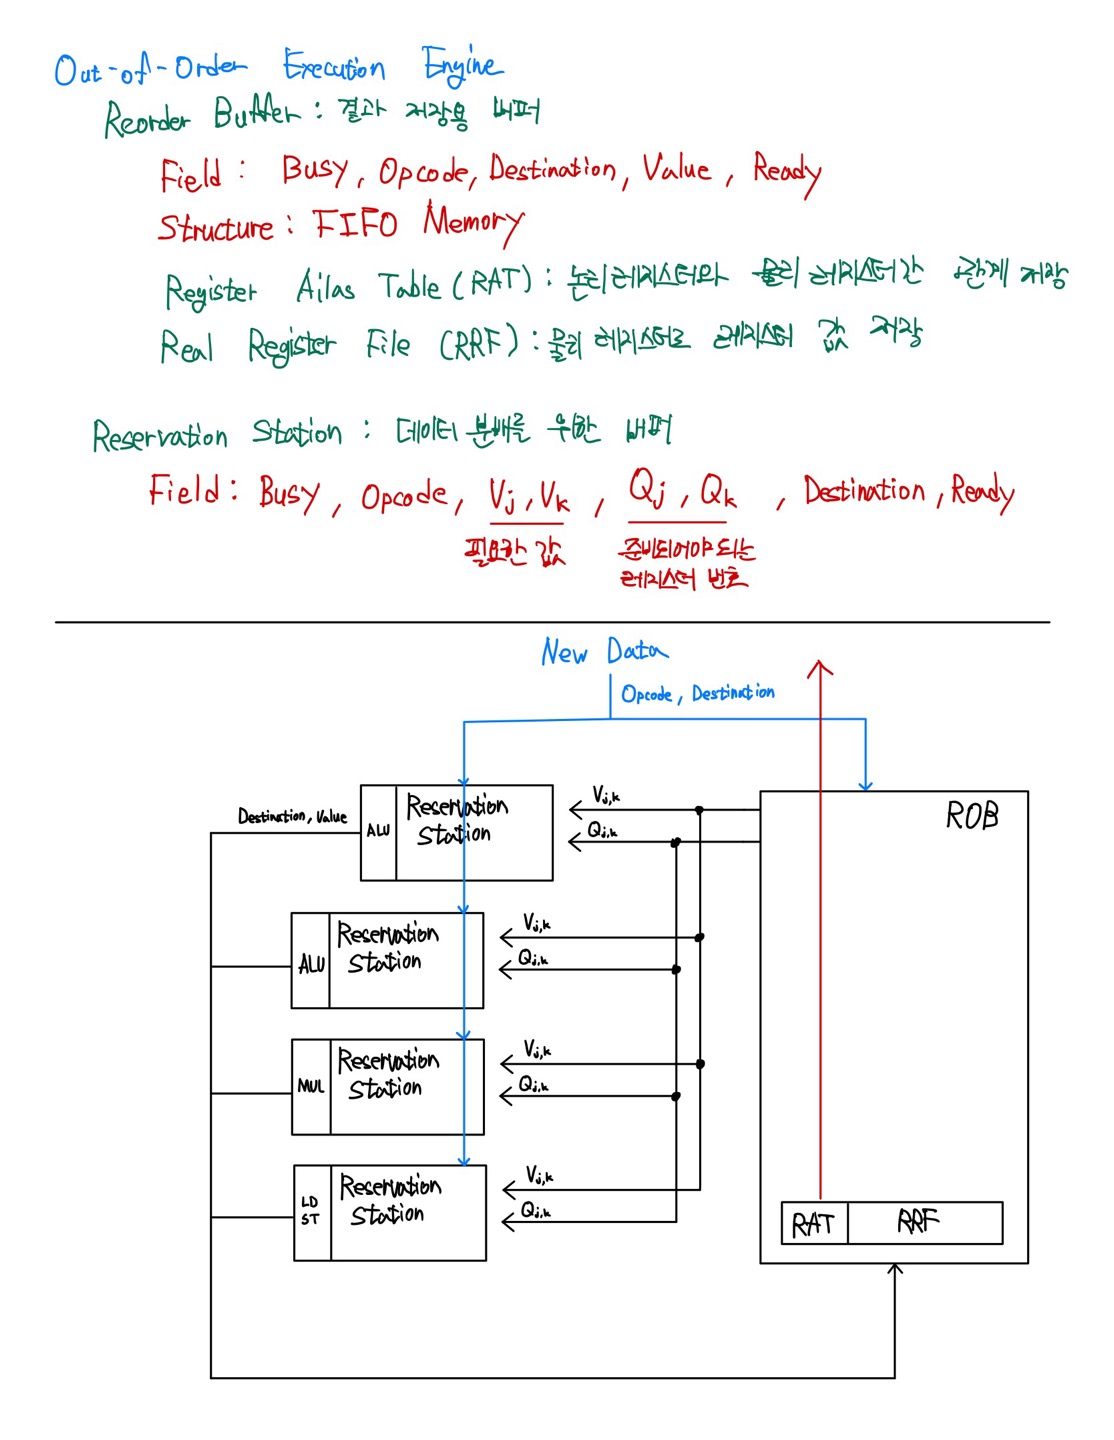 Out-of-Order Execution Engine
Reorder Buffer : 결과 저장용 버퍼
Field : Busy, Opcode, Destination, Value, Ready
Structure : FIFO Memory
Register Ailas Table (RAT) : 논리 레지스터와 물리 레지스터간 관계 저장
Real Register File (RRF) : 물리 레지스터로 레지스터 값 저장
Reservation Station : 데이터 분배를 위한 버퍼
Field : Busy, Opcode, Vj, Vk, Qj, Qk, Destination, Ready
필요한 값
준비되어야 되는
레지스터 번호
New Data
Opcode, Destination
Destination, Value
ALU
Reservation
Station
Vj,k
Qj,k
ROB
ALU
Reservation
Station
Vj,k
Qj,k
MUL
Reservation
Station
Vj,k
Qj,k
LD
ST
Reservation
Station
Vj,k
Qj,k
RAT
RRF